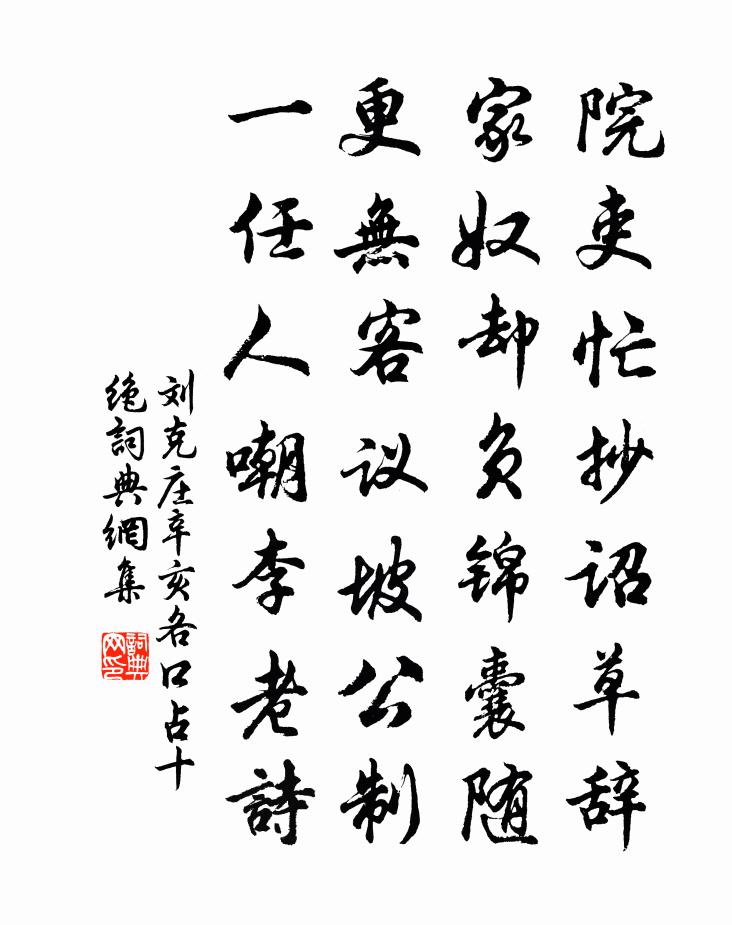 院吏忙抄诏草辞
家奴却负锦囊随
更無客议坡公制
一任人嘲李老詩
刘克庄辛亥各口占十
绝詞典網集
詞典
网印